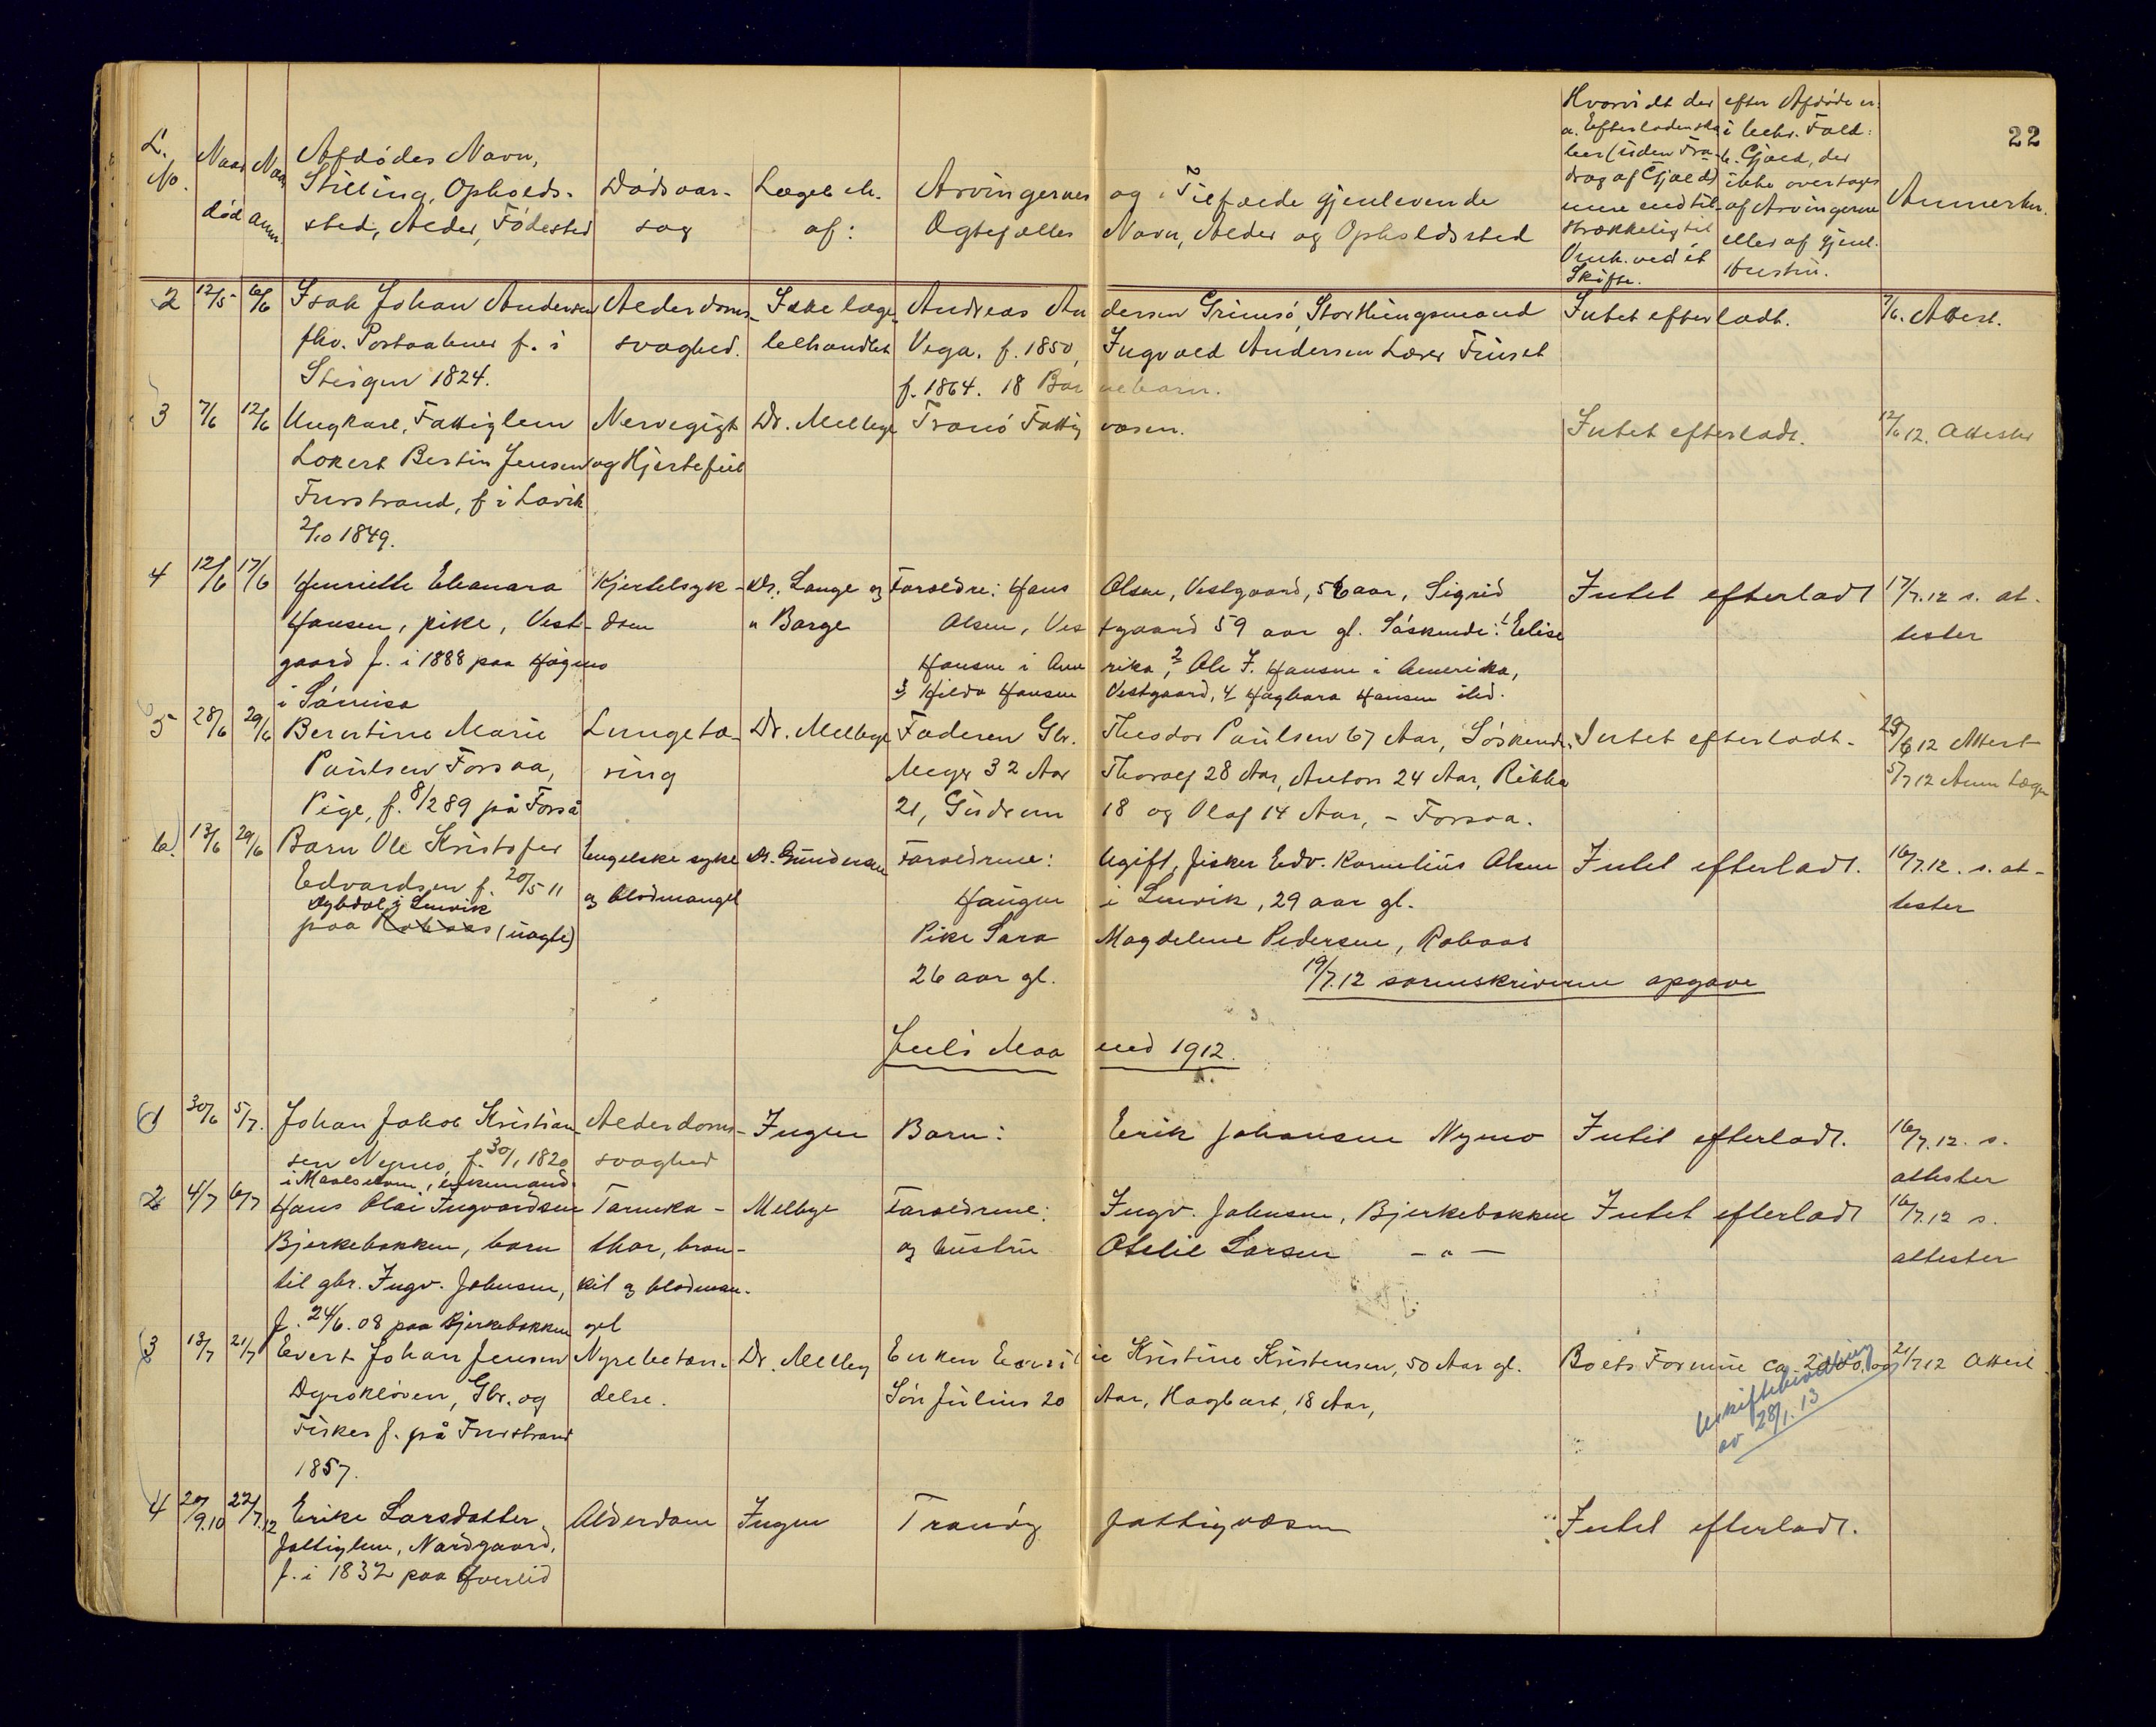 22
L. No. Naar død Naar anm. Afdødes Navn, Stilling, Opholds-sted, Alder, Fødested Dødsaar-sag Lægeb eh. af: Arvingernes og i Tilfælde gjenlevende Ægtefælles Navn, Alder og Opholdssted Hvorvidt der efter Afdøde er: a. Efterladenska ber (uden Fra-drag af Gjæld) mere end til-strækkelig til Omk. ved et Skifte. i beh. Fald: b. Gjæld, der ikke overtages af Arvingerne eller af gjenl. Hustru. Anmerkn.
2 12/5 6/6 Isak Johan Andersen Alderdoms- Ikke læge- Andreas Andersen Grimsö, Storthingsmand Intet efterladt. 7/6. Attest.
fhv. Postaabner f. i svaghed. behandlet Vega. f. 1850, Ingvald Andersen Lærer Finset
Steigen 1824. f. 1864. 18 Barnebarn.
3 7/6 12/6 Ungkarl, Fattiglem Nervegigt Dr. Melbye Tranö Fattigvæsen. Intet efterladt. 12/6 12. Attester
Lorert Bertin Jensen og Hjertefeil
Furstrand, f i Lavik
2/10 1849.
4 12/6 17/6 Henriette Eleanara Kjertelsyk- Dr. Lange og Forældre: Hans Olsen, Vestgaard, 56 aar, Sigrid Intet efterladt 17/7.12 s. at-
Hansen, pike, Vest- dom " Borge Olsen, Vestgaard 59 aar gl. Söskende: 1 Elise tester
gaard f. i 1888 paa Høgmo Hansen i Amerika, 2 Ole J. Hansen i Amerika,
i Sörreisa 3 Hilda Hansen Vestgaard, 4 Hagbara Hansen sted.
5 28/6 29/6 Berntine Marie Lungetæ- Dr. Melbye Faderen Gbr. Theodor Paulsen 67 Aar, Söskende: Intet efterladt. 29/6 12 Attest
Paulsen Forsaa, ring Meyer 32 Aar Thoralf 28 Aar, Anton 24 Aar, Rikka 5/7 12 Anm Læge
Pige, f. 8/2 89 på Forså 21, Gudrun 18 og Olaf 14 Aar, - Forsaa.
6. 13/6 29/6 Barn Ole Kristofer Engelske syke Dr. Gundersen Forældrene: Ugift, fisker Edv. Kornelius Olsen Intet efterladt. 16/7.12. s. at-
Edvardsen f. 20/5 11 og blodmangel Haugen i Lenvik, 29 aar gl. tester
Dybdal i Lenvik
paa Robaas (uægte) Pike Sara Magdelene Pedersen, Robaas
26 aar gl. 19/7.12 sorenskriveren opgave
Juli Maaned 1912.
1 30/6 5/7. Johan Jakob Kristian- Alderdoms- Ingen Barn: Erik Johansen Nymo Intet efterladt. 16/7.12. s.
sen Nymo, f. 30/1 1820 svaghed attester
i Maalselven, enkemand.
2 4/7 6/7 Hans Olai Ingvardsen Tarmka- Melbye Forældrene: Ingv. Johnsen, Bjerkebakken Intet efterladt 16/7.12 s.
Bjerkebakken, barn thar, bron- og hustru Otelie Larsen - " - attester
til gbr. Ingv. Johnsen, kit og blodman-
f. 24/6.08 paa Bjerkebakken gel
3 13/7 21/7 Evert Johan Jensen Nyrebetæn- Dr. Melbey Enken Kristine Kristensen, 50 Aar gl. Boets Formue ca. 2000, og 21/7 12 Attest.
Dyrskløven, Gbr. og delse. Sön Julius 20 Aar, Hagbart, 18 Aar, Uskiftebevilling
Fisker f. på Furstrand av 28/1.13
1857.
4 20/9.10 22/7.12 Erike Larsdatter Alderdom Ingen Tranöy fattigvæsen Intet efterladt.
fattiglem, Nordgaard,
f. i 1832 paa Overlid